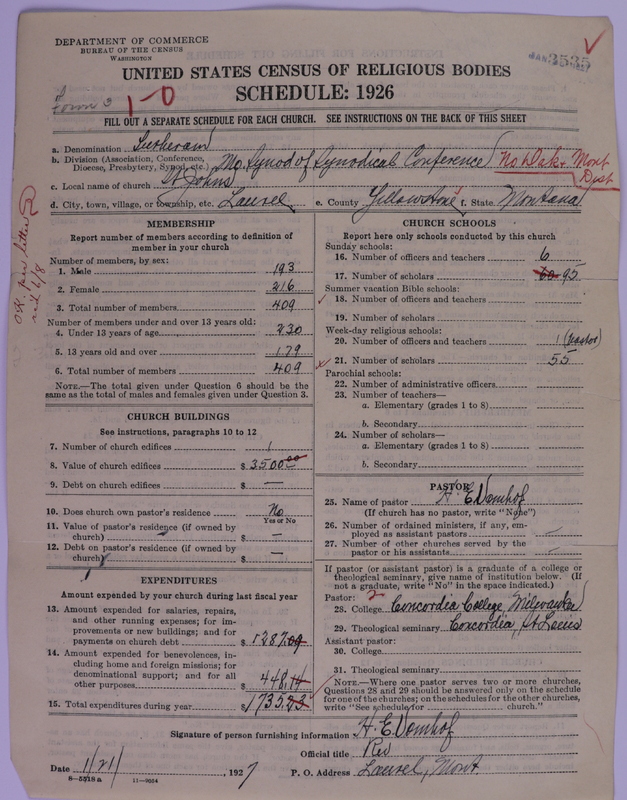 DEPARTMENT OF COMMERCE
BUREAU OF THE CENSUS
WASHINGTON
JAN 3535
UNITED STATES CENSUS OF RELIGIOUS BODIES
SCHEDULE: 1926
1-0
FILL OUT A SEPARATE SCHEDULE FOR EACH CHURCH. SEE INSTRUCTIONS ON THE BACK OF THIS SHEET
a. Denomination Lutheran
b. Division (Association, Conference, Diocese, Presbytery, Synod, etc.) Mo. Synod of Synodical Conference No Dak & Mont Dist
c. Local name of church St Johns
d. City, town, village, or township, etc. Laurel e. County Yellowstone f. State Montana
OK per letter
MEMBERSHIP
Report number of members according to definition of
member in your church
Number of members, by sex:
1. Male 193
2. Female 216
3. Total number of members 409
Number of members under and over 13 years old:
4. Under 13 years of age 230
5. 13 years old and over 179
6. Total number of members 409
NOTE.—The total given under Question 6 should be the
same as the total of males and females given under Question 3.
CHURCH BUILDINGS
See instructions, paragraphs 10 to 12
7. Number of church edifices 1
8. Value of church edifices $ 3500.00
9. Debt on church edifices $ —
10. Does church own pastor's residence No
Yes or No
11. Value of pastor's residence (if owned by
church) $ —
12. Debt on pastor's residence (if owned by
church) $ —
EXPENDITURES
Amount expended by your church during last fiscal year
13. Amount expended for salaries, repairs,
and other running expenses; for im-
provements or new buildings; and for
payments on church debt $ 1287.09
14. Amount expended for benevolences, in-
cluding home and foreign missions; for
denominational support; and for all
other purposes $ 448.14
15. Total expenditures during year $ 1735.23
CHURCH SCHOOLS
Report here only schools conducted by this church
Sunday schools:
16. Number of officers and teachers 6
17. Number of scholars 60 95
Summer vacation Bible schools:
18. Number of officers and teachers
19. Number of scholars
Week-day religious schools:
20. Number of officers and teachers 1 (pastor)
21. Number of scholars 55
Parochial schools:
22. Number of administrative officers
23. Number of teachers—
a. Elementary (grades 1 to 8)
b. Secondary
24. Number of scholars—
a. Elementary (grades 1 to 8)
b. Secondary
PASTOR
25. Name of pastor H. E. Vomhof
(If church has no pastor, write "None")
26. Number of ordained ministers, if any, em-
ployed as assistant pastors —
27. Number of other churches served by the
pastor or his assistants —
If pastor (or assistant pastor) is a graduate of a college or
theological seminary, give name of institution below. (If
not a graduate, write "No" in the space indicated.)
Pastor: 2
28. College Concordia College, Milwaukee
29. Theological seminary Concordia, St Louis
Assistant pastor:
30. College
31. Theological seminary
NOTE.—Where one pastor serves two or more churches,
Questions 28 and 29 should be answered only on the schedule
for one of the churches; on the schedules for the other churches,
write "See schedule for church."
Signature of person furnishing information H. E. Vomhof
Official title Rev
Date 1/21/, 1927 P. O. Address Laurel, Mont.
8-5318 a 11-9654